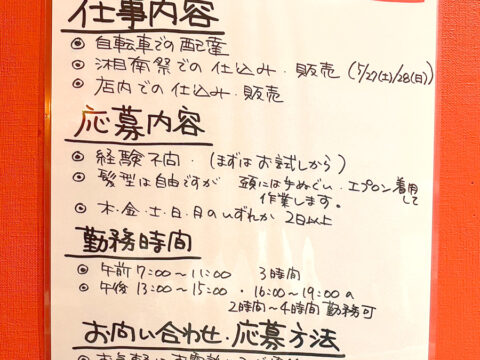 仕事内容
◉ 自転車での配達
◉ 湘南祭での仕込み・販売 (5/27(土)/28(日))
◉ 店内での仕込み・販売
応募内容
◉ 経験不問・(まずはお試しから)
◉ 髪型は自由ですが 頭には手ぬぐい・エプロン着用して
作業します。
◉ 木・金・土・日・月のいずれか 2日以上
勤務時間
◉ 午前 7:00〜11:00 3時間
◉ 午後 13:00〜15:00 ・ 16:00〜19:00の
2時間〜4時間勤務可
お問い合わせ・応募方法